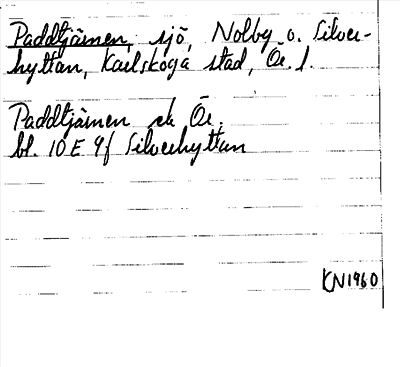 Paddtjärnen, sjö, Nolby o. Silver-
hyttan, Karlskoga stad, Ör. l.
Paddtjärnen ek Ör.
bl. 10E 9f Silverhyttan
KN1960